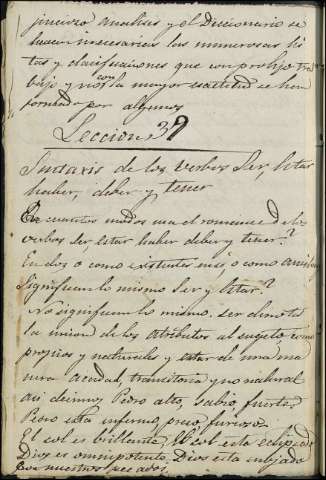 juicio analisis y el Diccionario se
hacen inecesarias las numerosas lis
tas y clasificaciones que con prolijo tra
bajo y no con la mayor esactitud se han
formado por algunos
Leccion 39
Sintaxis de los verbos Ser, Estar
haber, deber y tener
En cuantos modos usa el romance de los
verbos ser estar haber deber y tener?
En dos o como existentes
Significan lo mismo Ser y Estar?
No significan lo mismo. ser denota
la union de los atributos al sujeto como
propios y naturales y estar de una ma
nera acidental, transitoria y no natural
asi decimos Pedro alto, Sabio, fuerte.
Pedro esta enfermo, preso furioso.
El sol es brillante, El sol esta eclipsado
Dios es omnipotente, Dios esta enojado
por nuestros pecados.